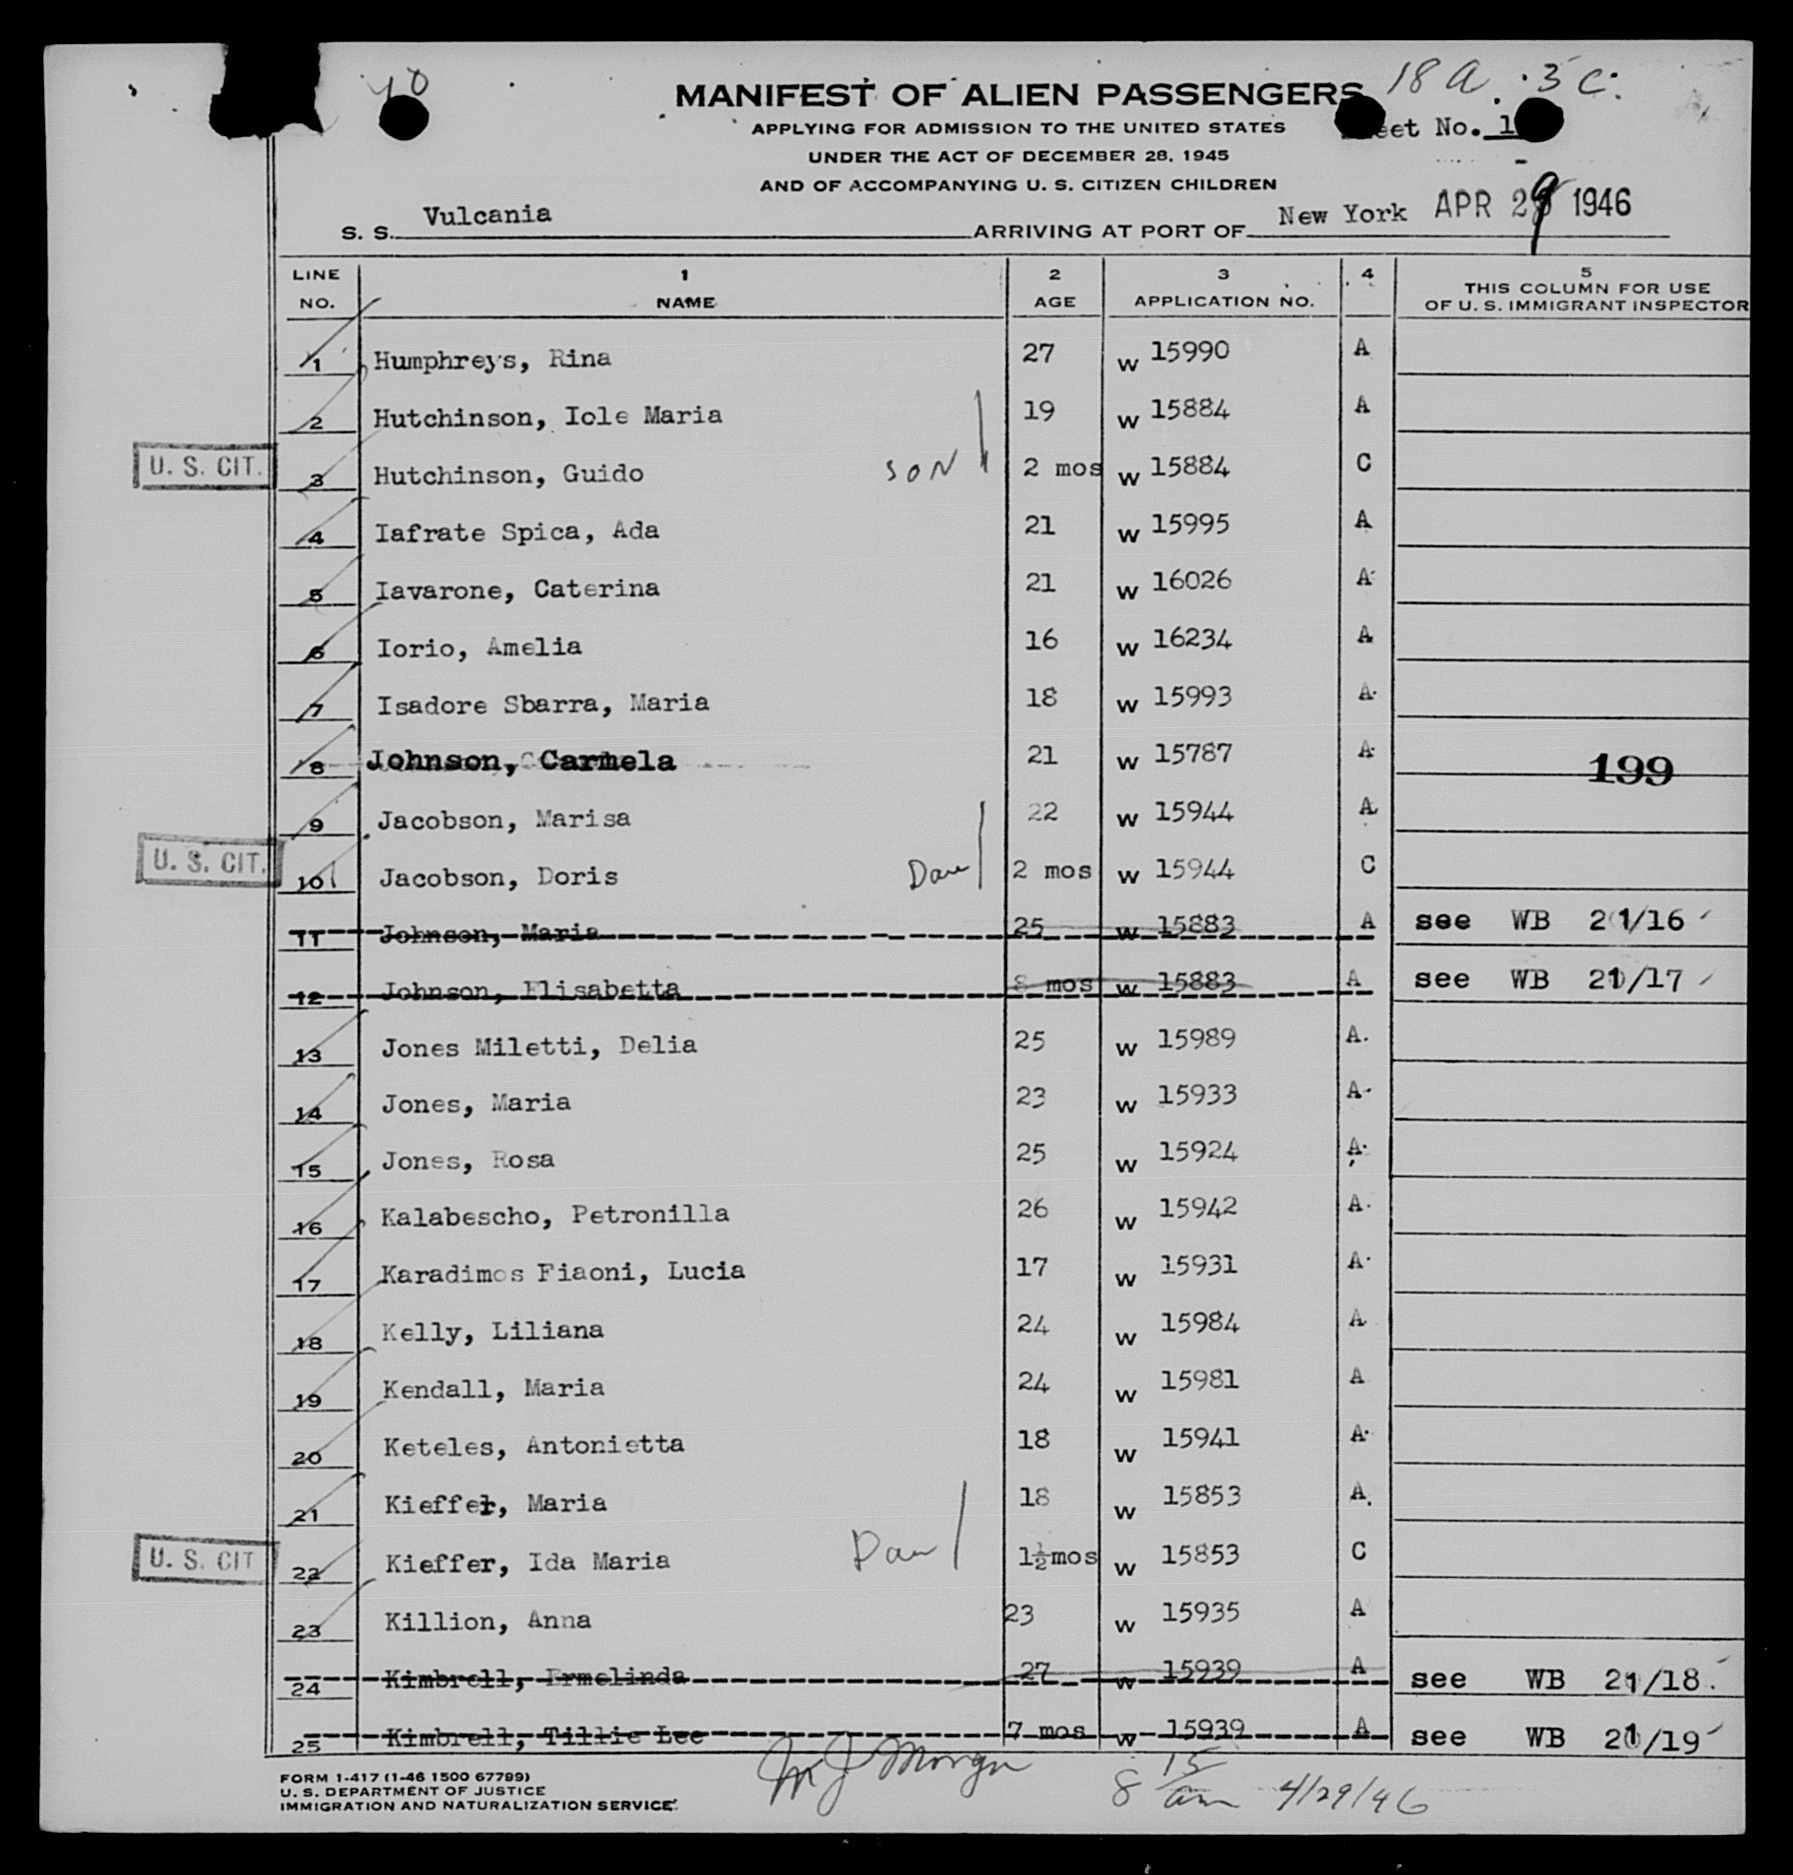 40
MANIFEST OF ALIEN PASSENGERS 18 a. 3 c.
APPLYING FOR ADMISSION TO THE UNITED STATES
eet No. 1
UNDER THE ACT OF DECEMBER 28, 1945
AND OF ACCOMPANYING U. S. CITIZEN CHILDREN
S. S. Vulcania ARRIVING AT PORT OF New York APR 29 1946
LINE NO. 1 NAME 2 AGE 3 APPLICATION NO. 4 5 THIS COLUMN FOR USE OF U. S. IMMIGRANT INSPECTOR
1 Humphreys, Rina 27 w 15990 A
2 Hutchinson, Iole Maria 19 w 15884 A
U. S. CIT. 3 Hutchinson, Guido SON 2 mos w 15884 C
4 Iafrate Spica, Ada 21 w 15995 A
5 Iavarone, Caterina 21 w 16026 A
6 Iorio, Amelia 16 w 16234 A
7 Isadore Sbarra, Maria 18 w 15993 A
8 Johnson, Carmela 21 w 15787 A 199
9 Jacobson, Marisa 22 w 15944 A
U. S. CIT. 10 Jacobson, Doris Dau 2 mos w 15944 C
11 Johnson, Maria 25 w 15883 A see WB 21/16
12 Johnson, Elisabetta 8 mos w 15883 A see WB 21/17
13 Jones Miletti, Delia 25 w 15989 A
14 Jones, Maria 23 w 15933 A
15 Jones, Rosa 25 w 15924 A
16 Kalabescho, Petronilla 26 w 15942 A
17 Karadimos Fiaoni, Lucia 17 w 15931 A
18 Kelly, Liliana 24 w 15984 A
19 Kendall, Maria 24 w 15981 A
20 Keteles, Antonietta 18 w 15941 A
21 Kieffer, Maria 18 w 15853 A
U. S. CIT 22 Kieffer, Ida Maria Dau 1½mos w 15853 C
23 Killion, Anna 23 w 15935 A
24 Kimbrell, Ermelinda 27 w 15939 A see WB 21/18
25 Kimbrell, Tillie Lee 7 mos w 15939 A see WB 21/19
FORM 1-417 (1-46 1500 67799)
U. S. DEPARTMENT OF JUSTICE
IMMIGRATION AND NATURALIZATION SERVICE
8 15 am 4/29/46